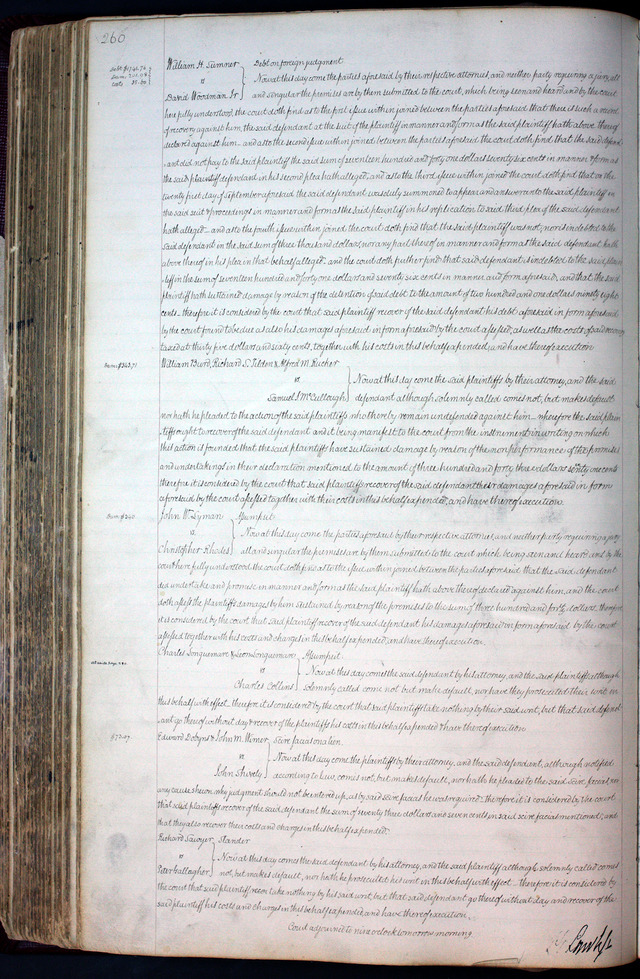 266
William H. Sumner } Debt on foreign judgment
Debt $1741.76
Dam. 201.98
Costs 35.60
vs Now at this day come the parties aforesaid by their respective attornies, and neither party requiring a jury, all
David Woodman Jr and singular the premises are by them submitted to the court, which being seen and heard and by the court
here fully understood, the court doth find as to the first issue within joined between the parties aforesaid that there is such a record
of recovery against him, the said defendant at the suit of the plaintiff in manner and form as the said plaintiff hath above thereof
declared against him, and as to the second issue within joined between the parties aforesaid the court doth find that the said defend
ant did not pay to the said plaintiff the said sum of seventeen hundred and forty one dollars seventy six cents in manner & form as
the said defendant in his second plea hath alleged, and as to the third issue within joined the court doth find that on the
twenty first day of September aforesaid the said defendant was duly summoned to appear and answer unto the said plaintiff in
the said suit & proceedings in manner and form as the said plaintiff in his replication to said third plea of the said defendant
hath alleged and as to the fourth issue within joined the court doth find that the said plaintiff was not, nor is indebted to the
said defendant in the said sum of three thousand dollars, nor any part thereof in manner and form as the said defendant hath
above thereof in his plea in that behalf alleged and the court doth further find that said defendant is indebted to the said plain
tiff in the sum of seventeen hundred and forty one dollars and seventy six cents in manner and form aforesaid, and that the said
plaintiff hath sustained damage by reason of the detention of said debt to the amount of two hundred and one dollars ninety eight
cents therefore it is considered by the court that said plaintiff recover of the said defendant his debt aforesaid in form aforesaid
by the court found to be due as also his damages aforesaid in form aforesaid by the court assessed, as well as the costs of said
taxed at thirty five dollars and sixty cents, together with his costs in this behalf expended, and have thereof execution
William Burd, Richard S. Tilden & Alfred M. Rucker
Dam $343.71
vs } Now at this day come the said plaintiffs by their attorney, and the said
Samuel J McCullough defendant although solemnly called comes not, but makes default
nor hath he pleaded to the action of the said plaintiffs who thereby remain undefended against him wherefore the said plain
tiffs ought to recover of the said defendant and it being manifest to the court from the instrument in writing on which
this action is founded that the said plaintiffs have sustained damage by reason of the nonperformance of the promises
and undertakings in their declaration mentioned to the amount of three hundred and forty three dollars seventy one cents
therefore it is considered by the court that said plaintiffs recover of the said defendant their damages aforesaid in form
aforesaid by the court assessed together with their costs in this behalf expended, and have thereof execution.
John W. Lyman } Assumpsit
Dam $340.
vs Now at this day come the parties aforesaid by their respective attornies, and neither party requiring a jury
Christopher Rhodes all and singular the premises are by them submitted to the court which being seen and heard and by the
court here fully understood the court doth find as to the issue within joined between the parties aforesaid that the said defendant
did undertake and promise in manner and form as the said plaintiff hath above thereof declared against him, and the court
doth assess the plaintiff's damages by him sustained by reason of the premises to the sum of three hundred and forty dollars, therefore
it is considered by the court that said plaintiff recover of the said defendant his damages aforesaid in form aforesaid by the court
assessed together with his costs and charges in this behalf expended, and have thereof execution.
Charles Longuemare & Leon Longuemare } Assumpsit
vs Now at this day comes the said defendant by his attorney, and the said plaintiffs although
Charles Collins solemnly called come not but make default, nor have they prosecuted their writ in
this behalf with effect therefore it is considered by the court that said plaintiffs take nothing by their said writ, but that said defend
ant go thereof without day & recover of the plaintiffs his costs in this behalf expended & have thereof execution
Edward Dobyns & John M. Wimer } Scire facias on a lien
$73.07
vs Now at this day come the plaintiffs by their attorney, and the said defendant, although notified
John Shively according to law, comes not, but makes default, nor hath he pleaded to the said scire facias, nor
any cause shewn why judgment should not be entered up, as by said scire facias he was required therefore it is considered by the court
that said plaintiffs recover of the said defendant the sum of seventy three dollars and seven cents in said scire facias mentioned, and
that they also recover their costs and charges in this behalf expended.
Richard Sawyer } Slander
vs Now at this day comes the said defendant by his attorney, and the said plaintiff although solemnly called comes
Peter Gallagher not, but makes default, nor hath he prosecuted his writ in this behalf with effect therefore it is considered by
the court that said plaintiff take nothing by his said writ but that said defendant go thereof without day and recover of the
said plaintiff his costs and charges in this behalf expended, and have thereof execution.
Court adjourned to nine o'clock tomorrow morning